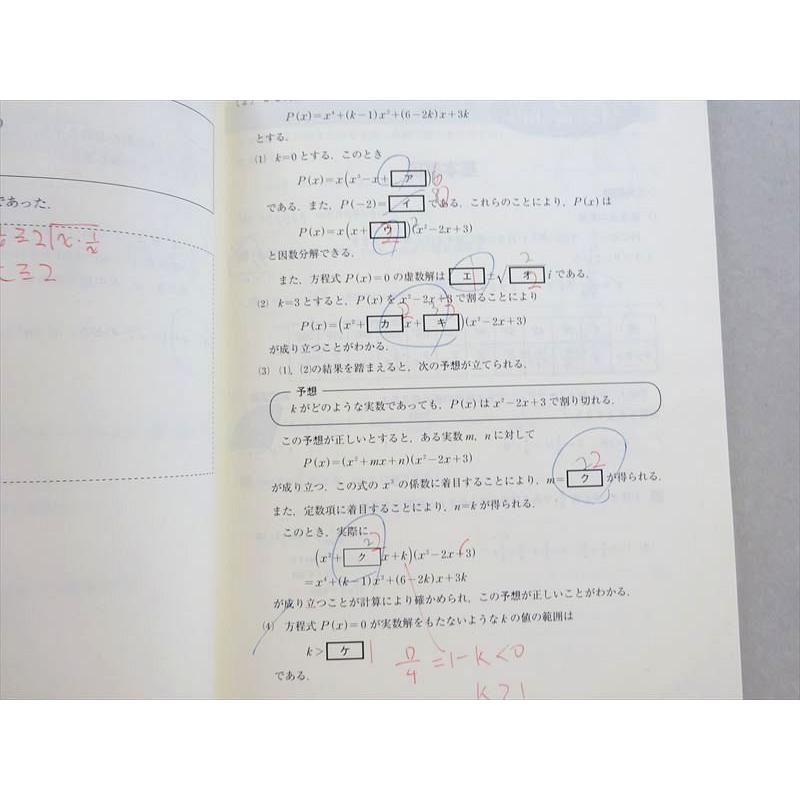 であった.
≧2√x・1/x
≧2
P(x)=x⁴+(k−1)x²+(6−2k)x+3k
とする.
(1) k=0とする. このとき
P(x)=x(x³−x+ア) 6
である. また, P(−2)=イ である. これらのことにより, P(x)は
P(x)=x(x+ウ)(x²−2x+3)
2
と因数分解できる.
2
また, 方程式P(x)=0の虚数解は エ±√オ i である.
1 2
(2) k=3とすると, P(x)をx²−2x+3で割ることにより
2 3
P(x)=(x²+カx+キ)(x²−2x+3)
が成り立つことがわかる.
(3) (1), (2)の結果を踏まえると, 次の予想が立てられる.
予想
kがどのような実数であっても, P(x)はx²−2x+3で割り切れる.
この予想が正しいとすると, ある実数m, nに対して
P(x)=(x²+mx+n)(x²−2x+3)
22
が成り立つ. この式のx³の係数に着目することにより, m=ク が得られる.
また, 定数項に着目することにより, n=kが得られる.
このとき, 実際に
2 2
(x²+クx+k)(x²−2x+3)
=x⁴+(k−1)x²+(6−2k)x+3k
が成り立つことが計算により確かめられ, この予想が正しいことがわかる.
(4) 方程式P(x)=0が実数解をもたないようなkの値の範囲は
k>ケ 1
D/4=1−k<0
である.
k>1